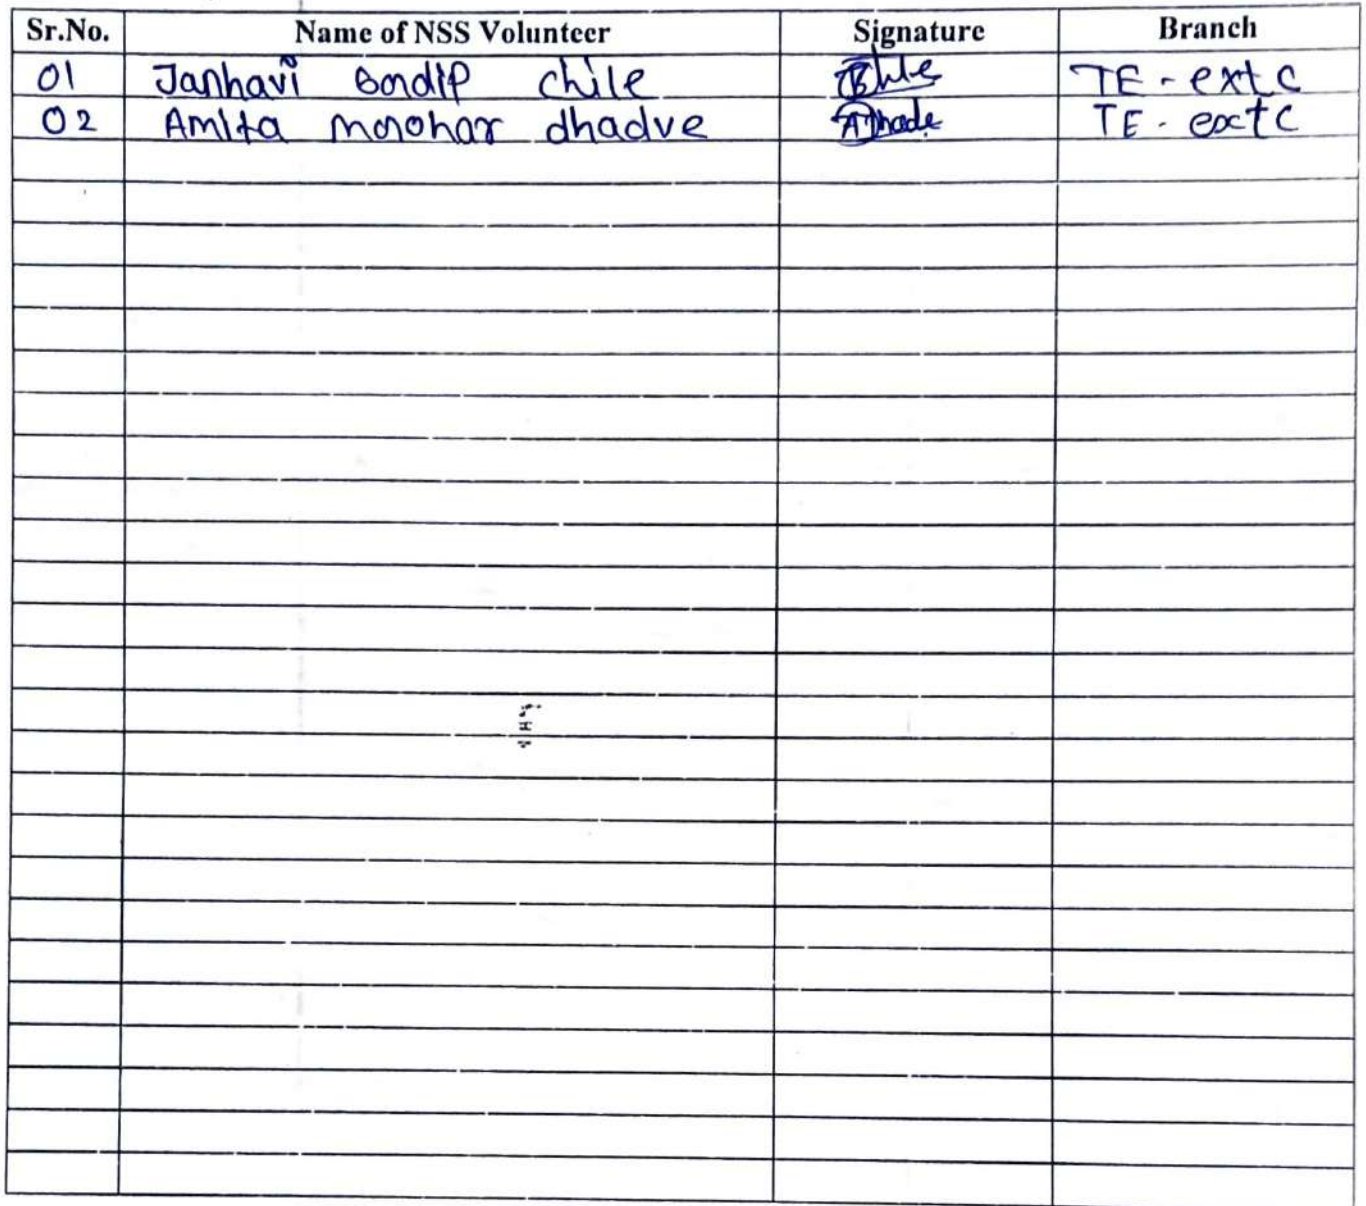 Sr.No. Name of NSS Volunteer Signature Branch
01 Janhavi Sandip chile TE - extc
02 Amita manohar dhadve TE - extc